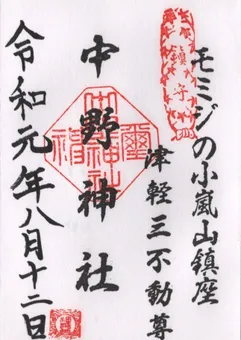 モミジの小嵐山鎮座
津軽三不動尊
中野神社
令和元年八月十二日
鎮守